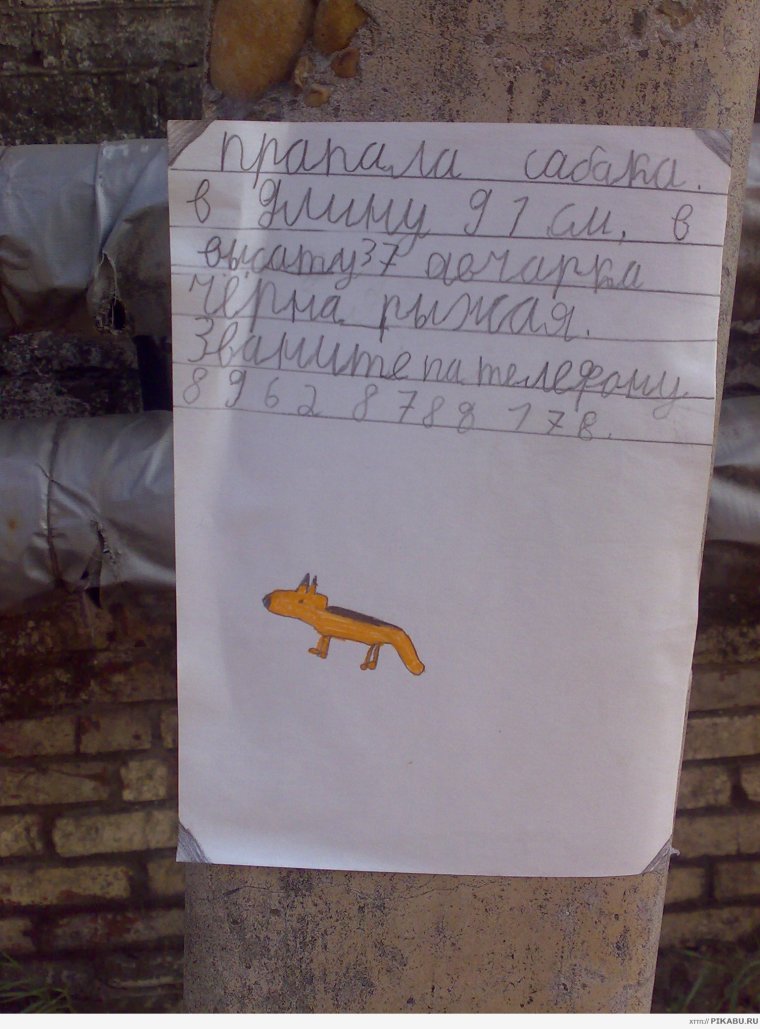 прапала сабака.
в длину 91 см, в
высату 37 авчарка
чёрна рыжая.
Званите па телефону
8 962 8788 178.
хттп:// PIKABU.RU